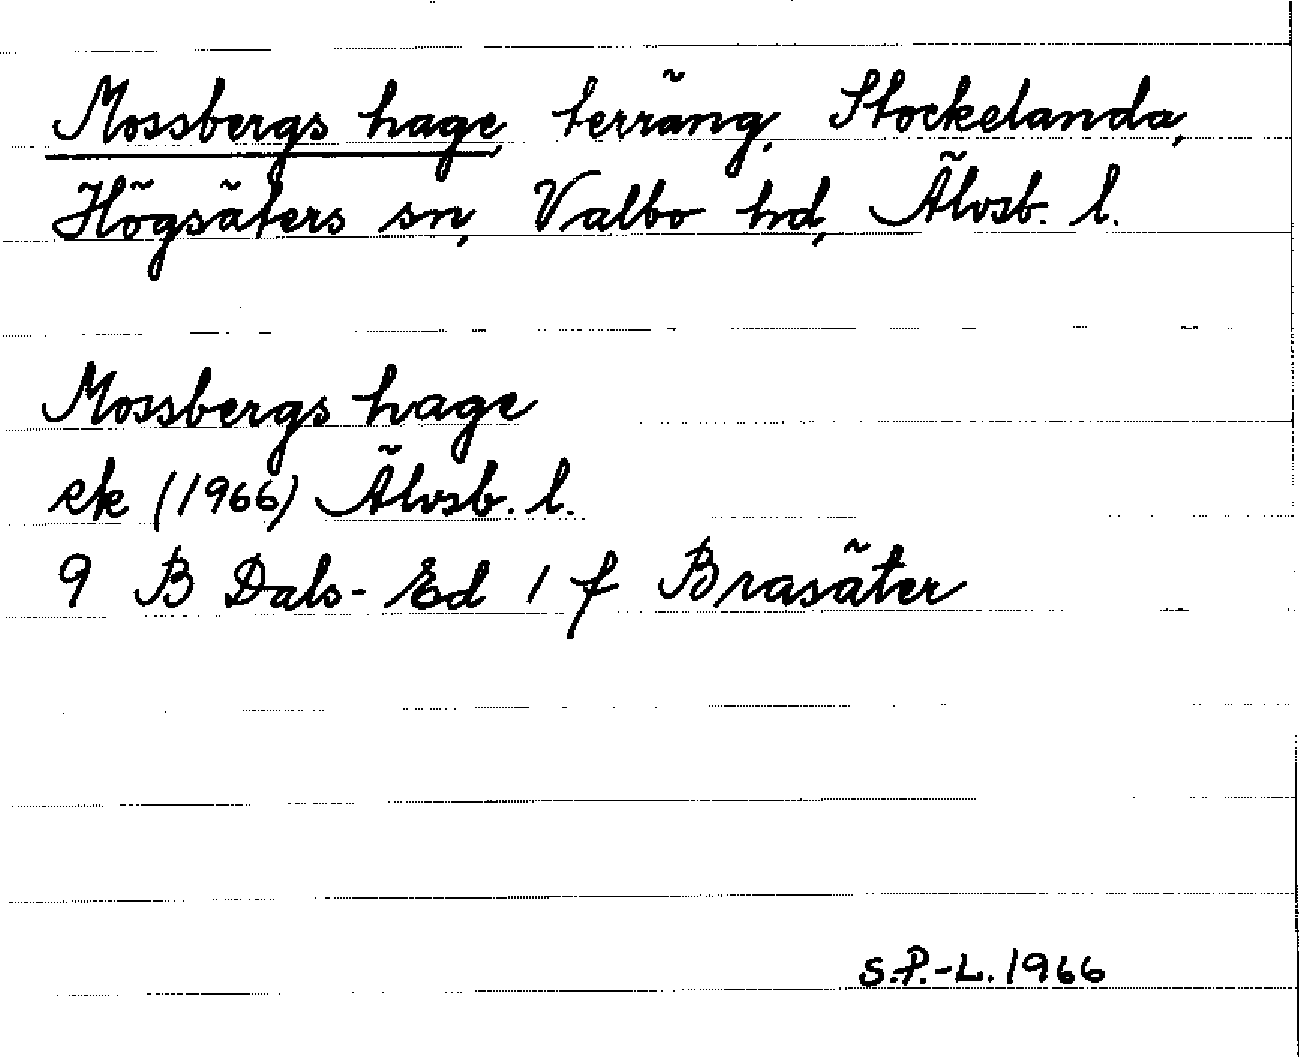 Mossbergs hage, terräng, Stockelanda,
Högsäters sn, Valbo hd, Älvsb. l.
Mossbergs hage
ek (1966) Älvsb. l.
9 B Dals-Ed 1 f Brasäter
S.P.-L. 1966